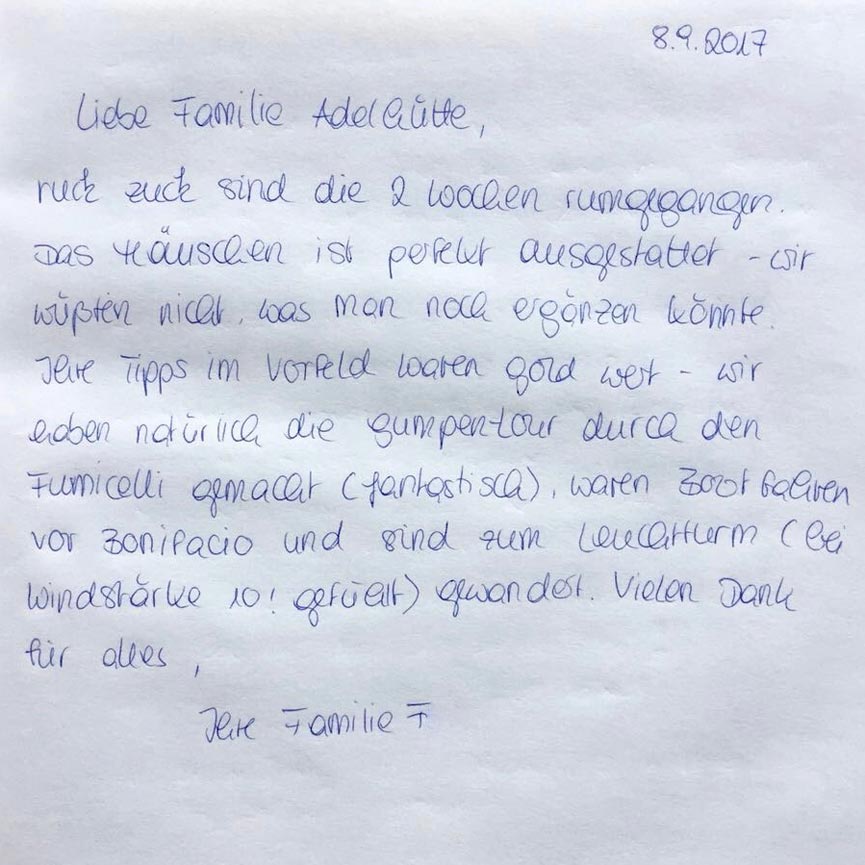 8.9.2017
Liebe Familie Adelhütte,
ruck zuck sind die 2 Wochen rumgegangen.
Das Häuschen ist perfekt ausgestattet - wir
wüßten nicht, was man noch ergänzen könnte.
Ihre Tipps im Vorfeld waren gold wert - wir
haben natürlich die Gumpentour durch den
Fumicelli gemacht (fantastisch), waren Boot fahren
vor Bonifacio und sind zum Leuchtturm (bei
Windstärke 10! gefühlt) gewandert. Vielen Dank
für alles,
Ihre Familie F